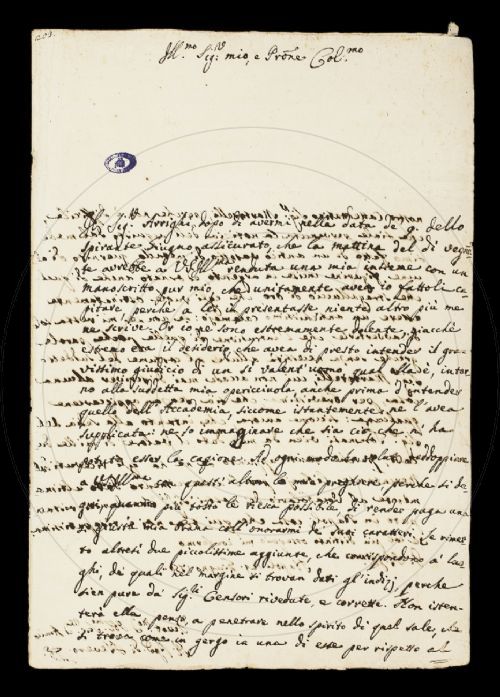 203.
Ill.mo Sig.r mio, e Prõne Col.mo
Il Sig.r Arrighi, dopo di avermi nella data de' 9. dello
spirante Giugno assicurato, che la mattina del dì vegnẽ
te avrebbe a VS Ill.ma renduta una mia insieme con un
manoscritto pur mio, che unitamente aveva io fattoli ca
pitare perchè a lei in presentasse niente altro più me
ne scrive. Or io ne sono estremamente dolente, giacchè
estremo era il desiderio che avea di presto intender il gra
vissimo giudicio di un sì valent'uomo, qual ella è, intor
no alla suddetta mia opericciuola, anche prima d'intender
quello dell'Accademia, siccome istantemente ne l'avea
supplicata; ne so immaginare che sia ciò che ha
potuto esser la cagione. Ad ogni modo ho voluto raddoppiare
a VS Ill.ma con questi altra le mie preghiere perchè si de
gni quanto più tosto le riesca possibile, di render paga una
sì giusta mia brama coll'onorarmi de' suoi caratteri. Le rimet
to altresì due picciolissime aggiunte, che corrispondono a' luo
ghi, de' quali nel margine si trovan dati gl'indizj, perchè
sien pure da' Sig.ri Censori rivedute, e corrette. Non isten
terà ella, penso, a penetrare nello spirito di quel sale, che
si trova come in gergo in una di esse per rispetto al